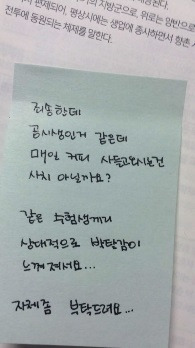 편제되어, 평상시에는 생업에 종사하면서 향촌
전투에 동원되는 체제를 말한다.
죄송한데
공시생인거 같은데
매일 커피 사들고오시는건
사치 아닐까요?
같은 수험생끼리
상대적으로 박탈감이
느껴져서요...
자제좀 부탁드려요...